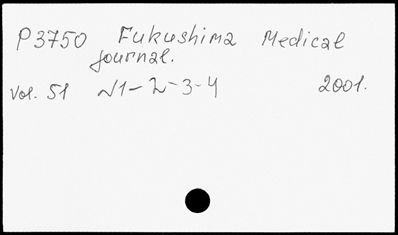 P3750 Fukushima Medical
journal.
Vol. 51 N1-2-3-4 2001.